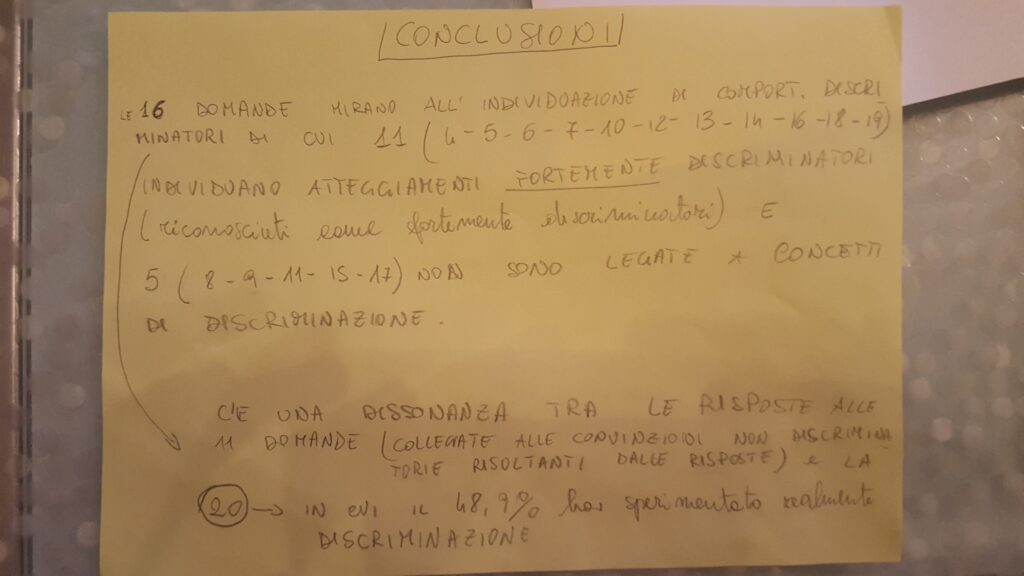 CONCLUSIONI
LE 16 DOMANDE MIRANO ALL'INDIVIDUAZIONE DI COMPORT. DISCRI
MINATORI DI CUI 11 (4-5-6-7-10-12-13-14-16-18-19)
INDIVIDUANO ATTEGGIAMENTI FORTEMENTE DISCRIMINATORI
(riconosciuti come fortemente discriminatori) E
5 (8-9-11-15-17) NON SONO LEGATE A CONCETTI
DI DISCRIMINAZIONE.
C'E UNA DISSONANZA TRA LE RISPOSTE ALLE
11 DOMANDE (COLLEGATE ALLE CONVINZIONI NON DISCRIMINA
TORIE RISULTANTI DALLE RISPOSTE) e LA
20 → IN CUI IL 48,9% ha sperimentato realmente
DISCRIMINAZIONE